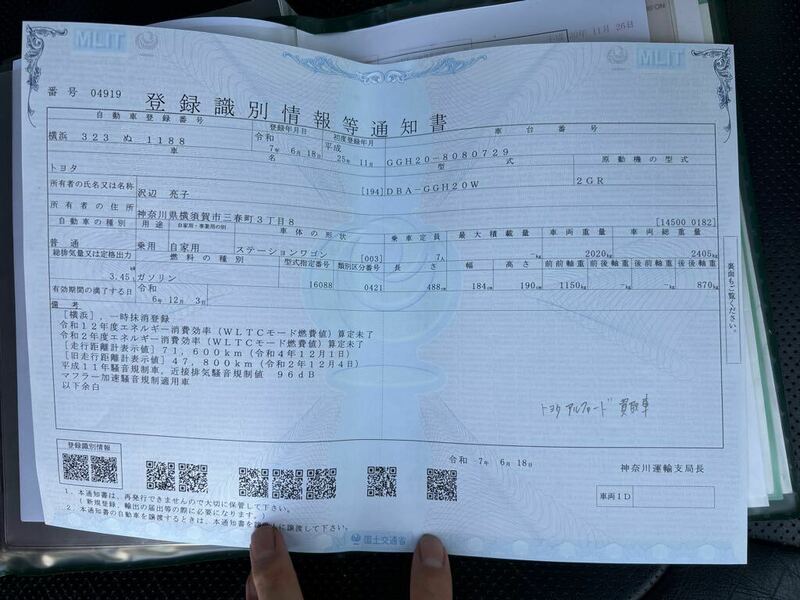 年 11月 26日
MLIT
MLIT
番号 04919
登録識別情報等通知書
自動車登録番号 登録年月日 初度登録年月 車台番号
横浜 323 ぬ 1188 令和 7年 6月 18日 平成 25年 11月 GGH20-8080729
車名 型式 原動機の型式
トヨタ [194] DBA-GGH20W 2GR
所有者の氏名又は名称 沢辺 亮子
所有者の住所 神奈川県横須賀市三春町3丁目8 [14500 0182]
自動車の種別 用途 自家用・事業用の別 車体の形状 乗車定員 最大積載量 車両重量 車両総重量
普通 乗用 自家用 ステーションワゴン [003] 7人 -kg 2020kg 2405kg
総排気量又は定格出力 燃料の種別 型式指定番号 類別区分番号 長さ 幅 高さ 前前軸重 前後軸重 後前軸重 後後軸重
3.45 ガソリン 16088 0421 488cm 184cm 190cm 1150kg -kg -kg 870kg
有効期間の満了する日 令和 6年 12月 3日
備考
[横浜],一時抹消登録
令和12年度エネルギー消費効率(WLTCモード燃費値)算定未了
令和2年度エネルギー消費効率(WLTCモード燃費値)算定未了
[走行距離計表示値]71,600km(令和4年12月1日)
[旧走行距離計表示値]47,800km(令和2年12月4日)
平成11年騒音規制車,近接排気騒音規制値 96dB
マフラー加速騒音規制適用車
以下余白
裏面もご覧ください。
トヨタ アルファード 買取車
登録識別情報
令和 7年 6月 18日 神奈川運輸支局長
車両ID
1.本通知書は、再発行できませんので大切に保管して下さい。
(新規登録、輸出の届出等の際に必要になります。)
2.本通知書の自動車を譲渡するときは、本通知書を譲受人に譲渡して下さい。
国土交通省